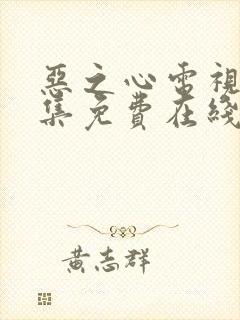 惡之心電視
集免費在綫
黃志群